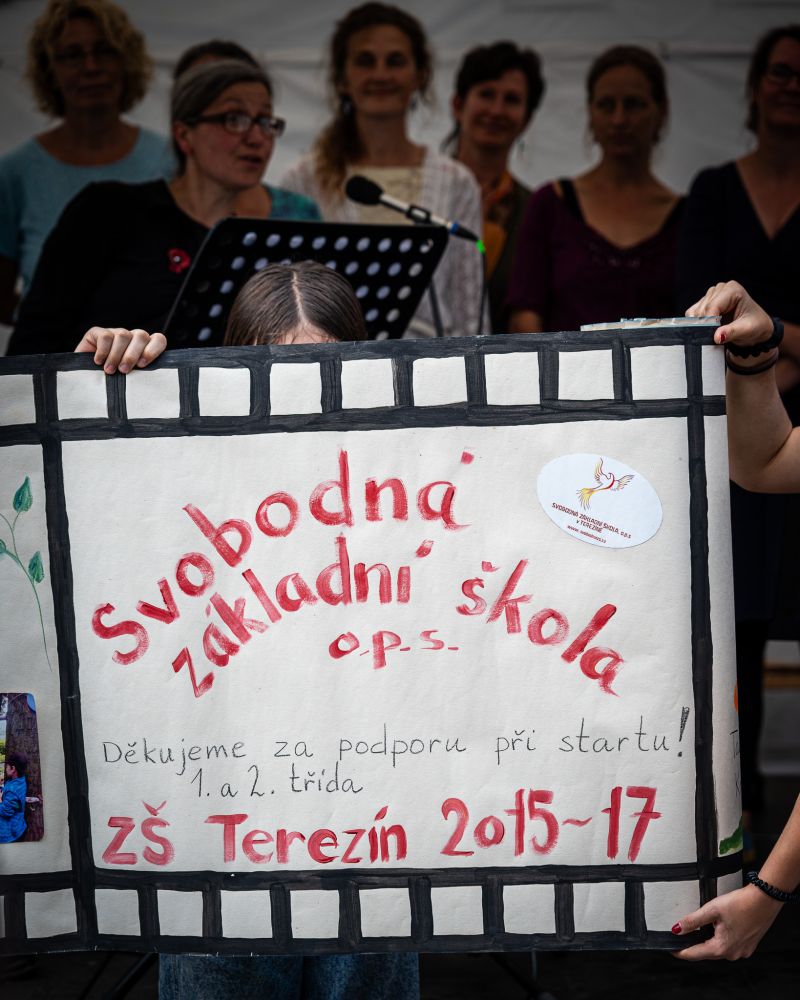 Svobodná
základní škola
o.p.s.
SVOBODNÁ ZÁKLADNÍ ŠKOLA, o.p.s
v TEREZÍNĚ
Děkujeme za podporu při startu!
1. a 2. třída
ZŠ Terezín 2015~17